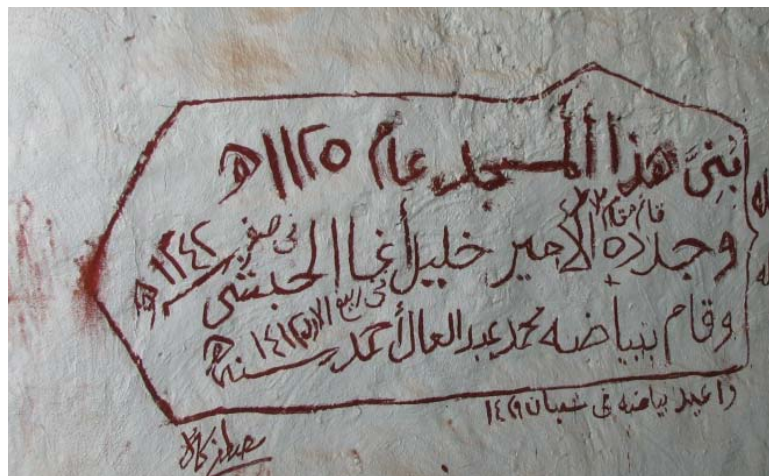 بُنِىَ هذا المسجد عام ١١٢٥ هـ
قائم مقام
وجدده الأمير خليل أغا الحبشى فى صفر سنة ١٢٤٢ هـ
وقام ببياضه محمد عبد العال أحمد فى ربيع الأول سنة ١٤١٢ هـ
واعيد بياضه فى شعبان ١٤٢٩